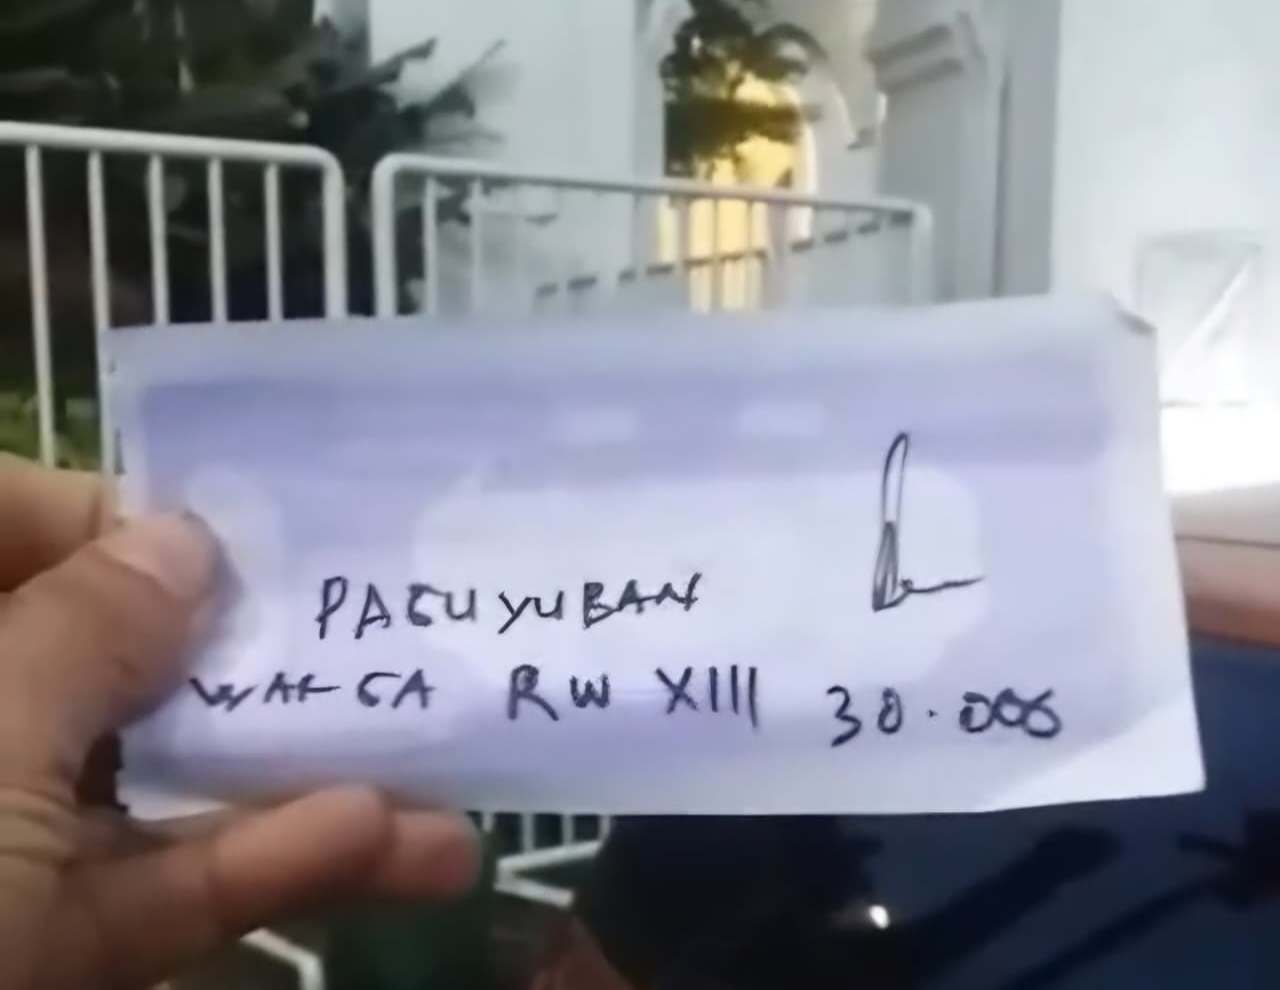 PAGUYUBAN
WARGA RW XIII 30.000